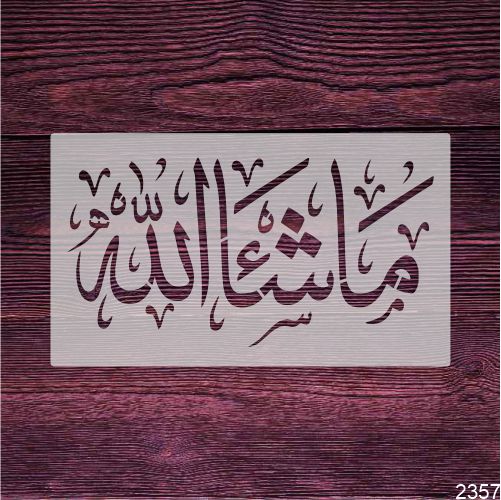 ما شاء الله
2357